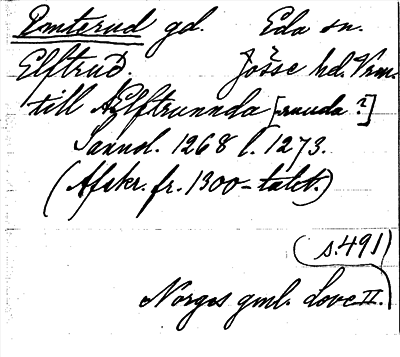 Emterud gd. Eda sn.
Elftrud. Jösse hd. Vrm.
till AElftrunnda [rauda?]
Sannd. 1268 l. 1273.
(Afskr. fr. 1300-talet.)
(s. 491)
Norges gml. Love II.